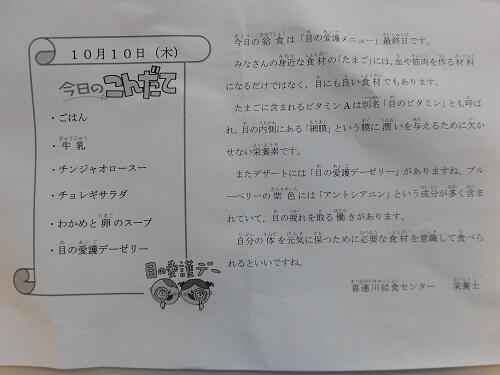 10月10日（木）
今日のこんだて
・ごはん
・牛乳
・チンジャオロースー
・チョレギサラダ
・わかめと卵のスープ
・目の愛護デーゼリー
目の愛護デー
今日の給食は「目の愛護メニュー」最終日です。
みなさんの身近な食材の「たまご」には、血や筋肉を作る材料
になるだけではなく、目にも良い食材でもあります。
たまごに含まれるビタミンAは別名「目のビタミン」とも呼ば
れ、目の内側にある「網膜」という膜に潤いを与えるために欠か
せない栄養素です。
またデザートには「目の愛護デーゼリー」がありますね。ブル
ーベリーの紫色には「アントシアニン」という成分が多く含ま
れていて、目の疲れを取る働きがあります。
自分の体を元気に保つために必要な食材を意識して食べら
れるといいですね。
喜連川給食センター　栄養士